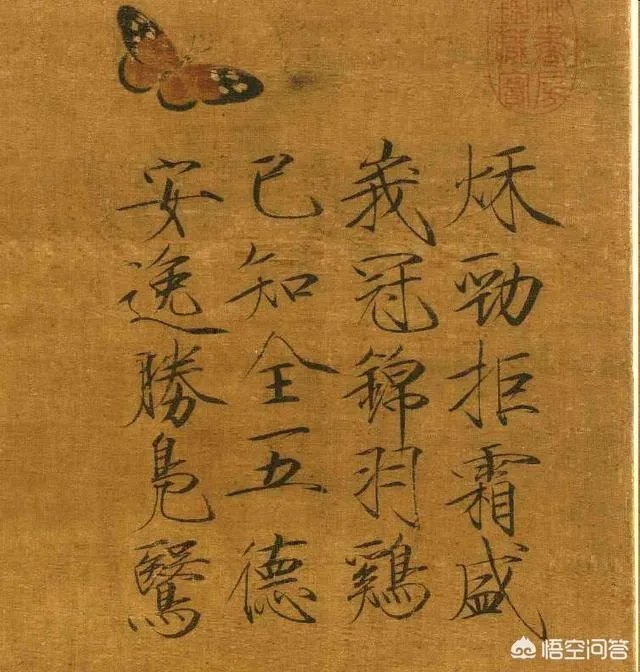 秌勁拒霜盛
峩冠錦羽鷄
已知全五德
安逸勝鳧鷖
悟空问答